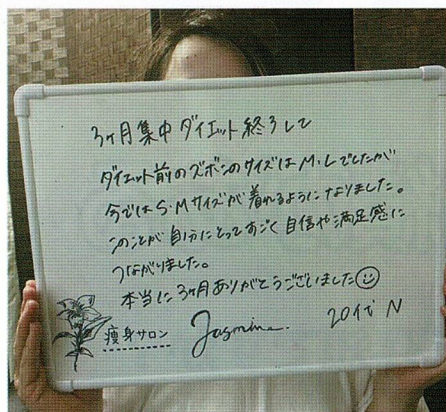 3ヶ月集中ダイエット終了して
ダイエット前のズボンのサイズはM・Lでしたが
今ではS・Mサイズが着れるようになりました。
このことが自分にとってすごく自信や満足感に
つながりました。
本当に3ヶ月ありがとうございました☺
痩身サロン Jasmine 20代 N